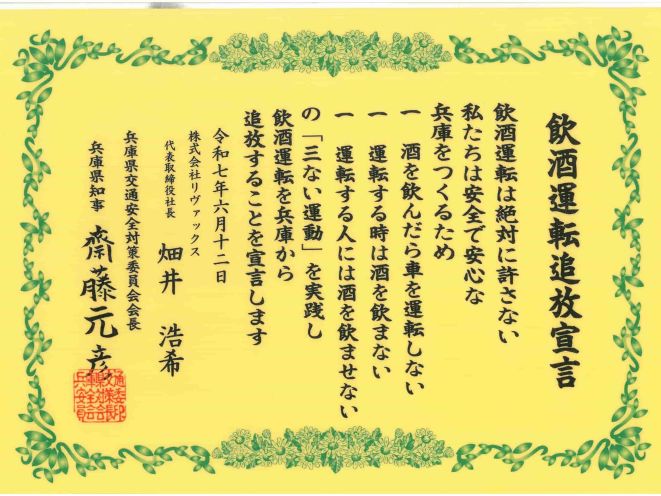 飲酒運転追放宣言
飲酒運転は絶対に許さない
私たちは安全で安心な
兵庫をつくるため
一 酒を飲んだら車を運転しない
一 運転する時は酒を飲まない
一 運転する人には酒を飲ませない
の「三ない運動」を実践し
飲酒運転を兵庫から
追放することを宣言します
令和七年六月十二日
株式会社リヴァックス
代表取締役社長 畑井 浩希
兵庫県交通安全対策委員会会長
兵庫県知事 齋藤元彦